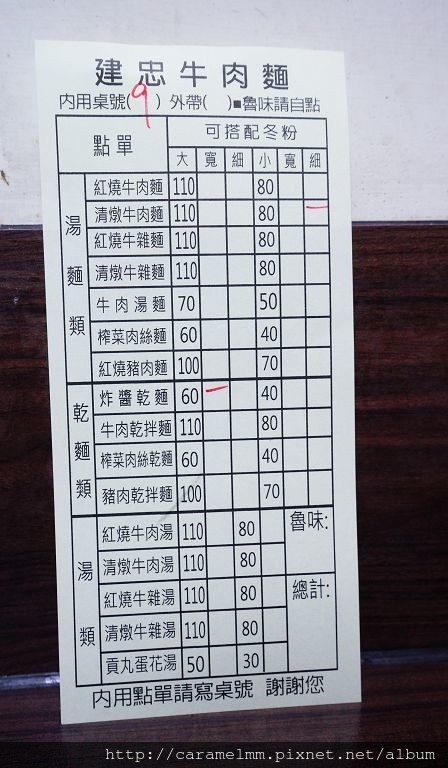 建忠牛肉麵
內用桌號(9) 外帶( )■魯味請自點
點單 可搭配冬粉
大 寬 細 小 寬 細
湯麵類
紅燒牛肉麵 110 80
清燉牛肉麵 110 80
紅燒牛雜麵 110 80
清燉牛雜麵 110 80
牛肉湯麵 70 50
榨菜肉絲麵 60 40
紅燒豬肉麵 100 70
乾麵類
炸醬乾麵 60 40
牛肉乾拌麵 110 80
榨菜肉絲乾麵 60 40
豬肉乾拌麵 100 70
湯類
紅燒牛肉湯 110 80
清燉牛肉湯 110 80
紅燒牛雜湯 110 80
清燉牛雜湯 110 80
貢丸蛋花湯 50 30
魯味:
總計:
內用點單請寫桌號 謝謝您
http://caramelmm.pixnet.net/album